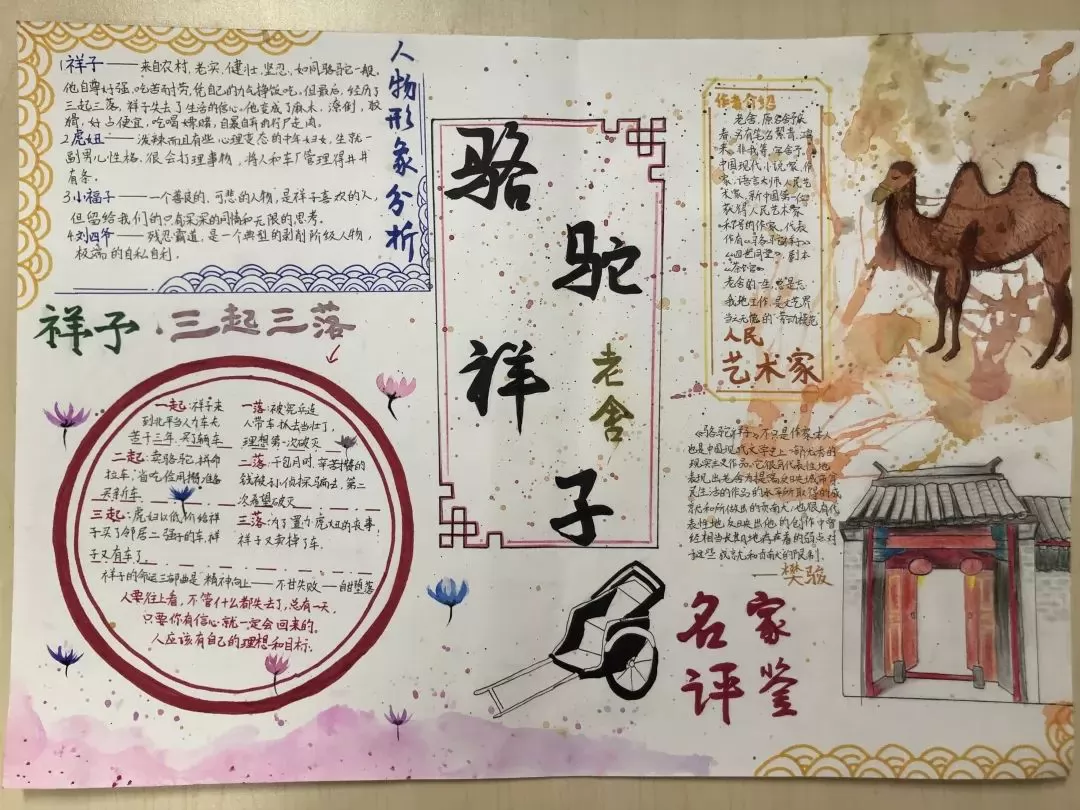 人物形象分析
1.祥子——来自农村,老实,健壮,坚忍,如同骆驼一般,
他自尊好强,吃苦耐劳,凭自己的力气挣饭吃,但最后,经历了
三起三落,祥子失去了生活的信心,他变成了麻木、潦倒、狡
猾、好占便宜,吃喝嫖赌,自暴自弃的行尸走肉。
2.虎妞——泼辣而且有些心理变态的中年妇女,生就一
副男儿性格,很会打理事物,将人和车厂管理得井井
有条
3.小福子——一个善良的,可悲的人物,是祥子喜欢的人
但留给我们的只有深深的同情和无限的思考。
4.刘四爷——残忍霸道,是一个典型的剥削阶级人物,
极端的自私自利。
祥子三起三落
一起:祥子来
到北平当人力车夫
苦干三年,买了辆车
一落:被宪兵连
人带车抓去当壮丁,
理想第一次破灭
二起:卖骆驼,拼命
拉车,省吃俭用攒准备
买新车
二落:干包月时,辛苦攒的
钱被孙侦探骗去,第二
次希望破灭
三起:虎妞以低价给祥
子买了邻居二强子的车,祥
子又有车了
三落:为了置办虎妞的丧事,
祥子又卖掉了车。
祥子的命运三部曲是"精神向上——不甘失败——自甘堕落
人要往上看,不管什么都失去了,总有一天,
只要你有信心就一定会回来的。
人应该有自己的理想和目标.
骆驼祥子
老舍
作者介绍
老舍,原名舒庆
春,另有笔名絜青、鸿
来、非我等,字舍予。
中国现代小说家、作
家、语言大师、人民艺
术家,新中国第一位
获得人民艺术家
称号的作家。代表
作有《骆驼祥子》
《四世同堂》,剧本
《茶馆》
老舍的一生,总是忘
我地工作,是文艺界
当之无愧的"劳动模范
人民
艺术家
《骆驼祥子》不只是作家本人
也是中国现代文学史上一部优秀的
现实主义作品。它很有代表性地
表现出老舍为提高反映城市贫
民生活的作品的水平所取得的成
就和所做出的贡南大;也很有代
表性地反映出他的创作中曾
经相当长期地存在着的弱点对
这些成就和贡南大的限制。
——樊骏
名家
评鉴